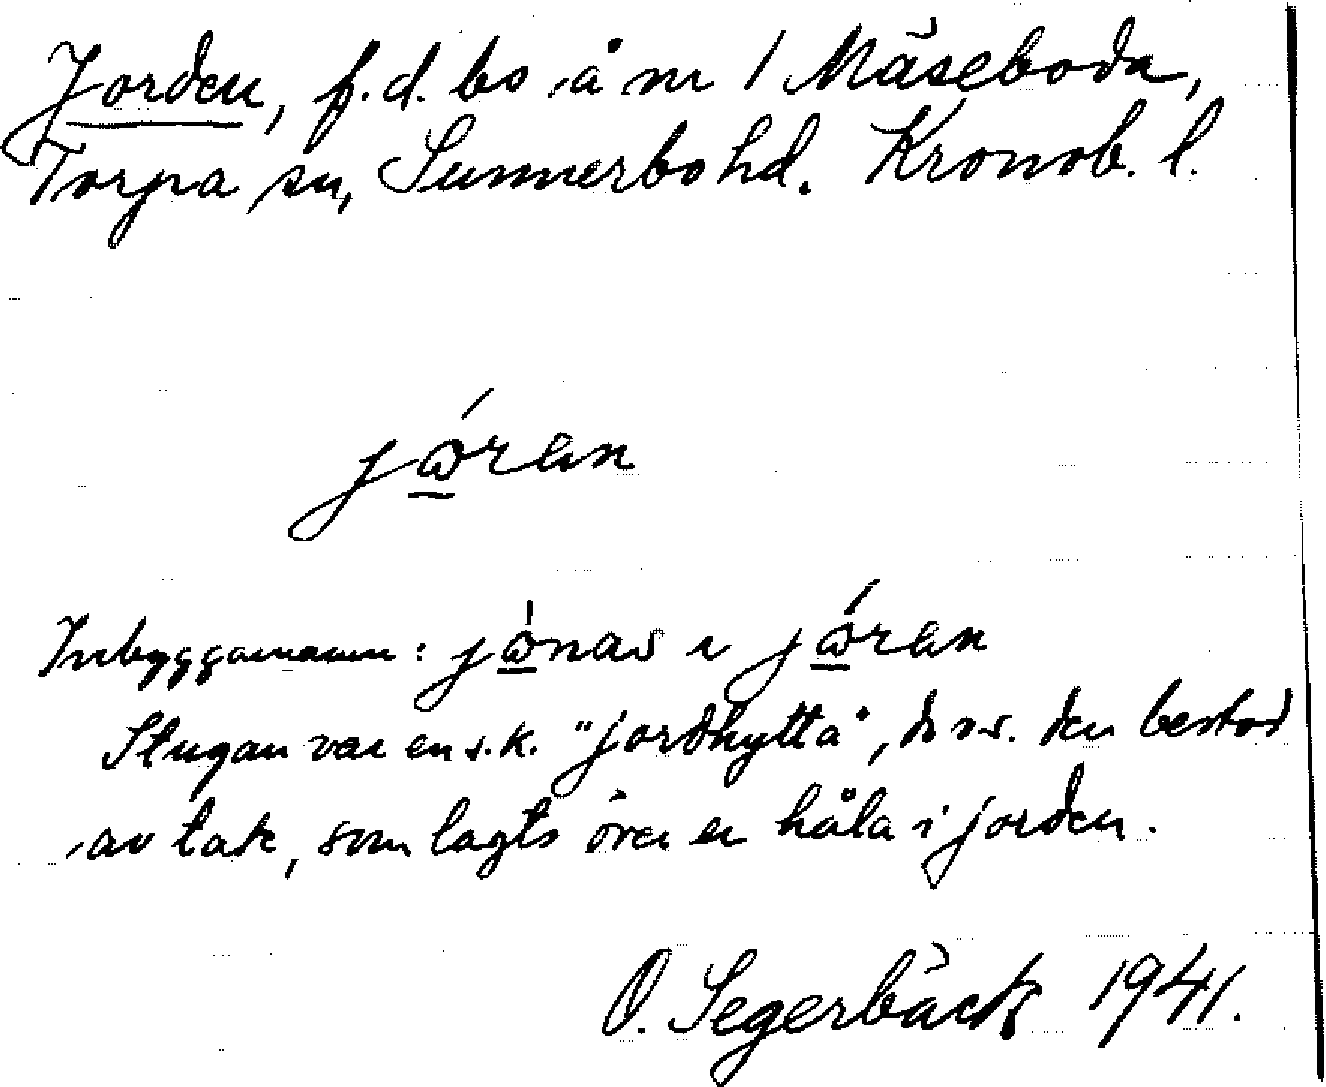 Jorden, f.d. bo å nr 1 Mäseboda,
Torpa sn, Sunnerbo hd. Kronob. l.
jɷ́ran
Inbyggarnamn: jɷ̀nas i jɷ́ran
Stugan var en s.k. "jordhytta", d.v.s. den bestod
av tak, som lagts över en håla i jorden.
O. Segerbäck 1941.